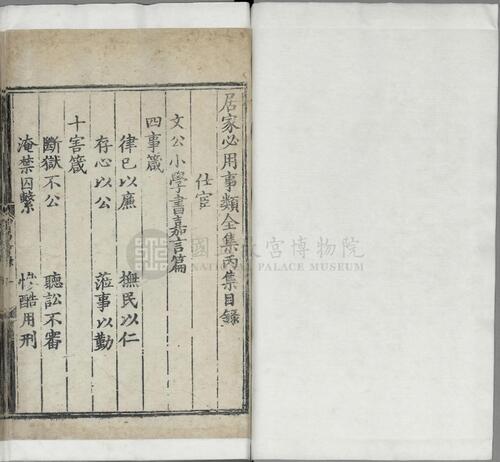 居家必用事類全集丙集目録
仕宦
文公小學書嘉言篇
四事箴
律己以廉 撫民以仁
存心以公 蒞事以勤
十害箴
斷獄不公 聽訟不審
淹禁囚繫 慘酷用刑
國立故宮博物院
NATIONAL PALACE MUSEUM